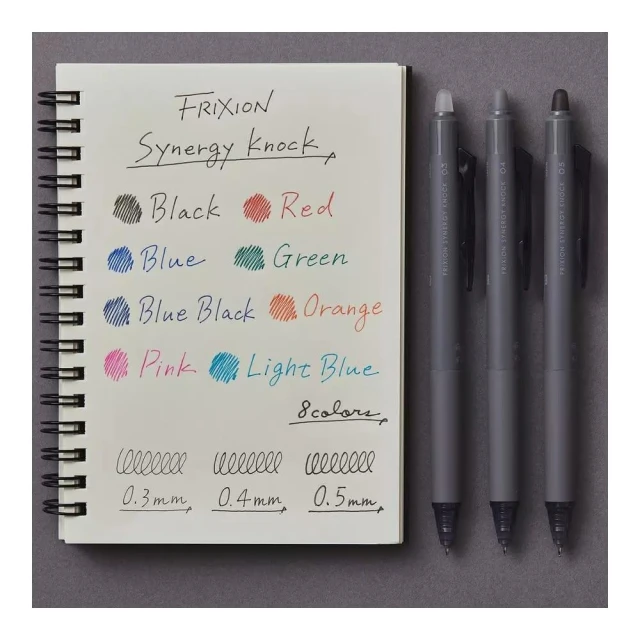 FRIXION
Synergy Knock
Black Red
Blue Green
Blue Black Orange
Pink Light Blue
8colors
0.3mm 0.4mm 0.5mm
FRIXION SYNERGY KNOCK 0.3
FRIXION SYNERGY KNOCK 0.4
FRIXION SYNERGY KNOCK 0.5